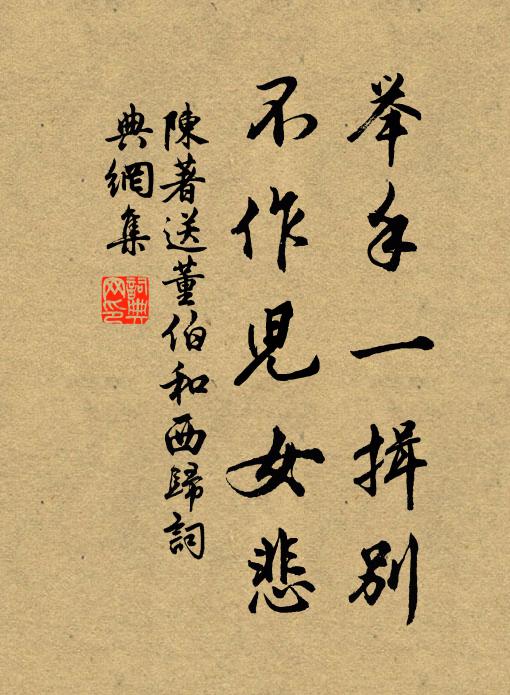 举手一揖别
不作児女悲
陳著送董伯和西歸詞
典網集
詞典网印